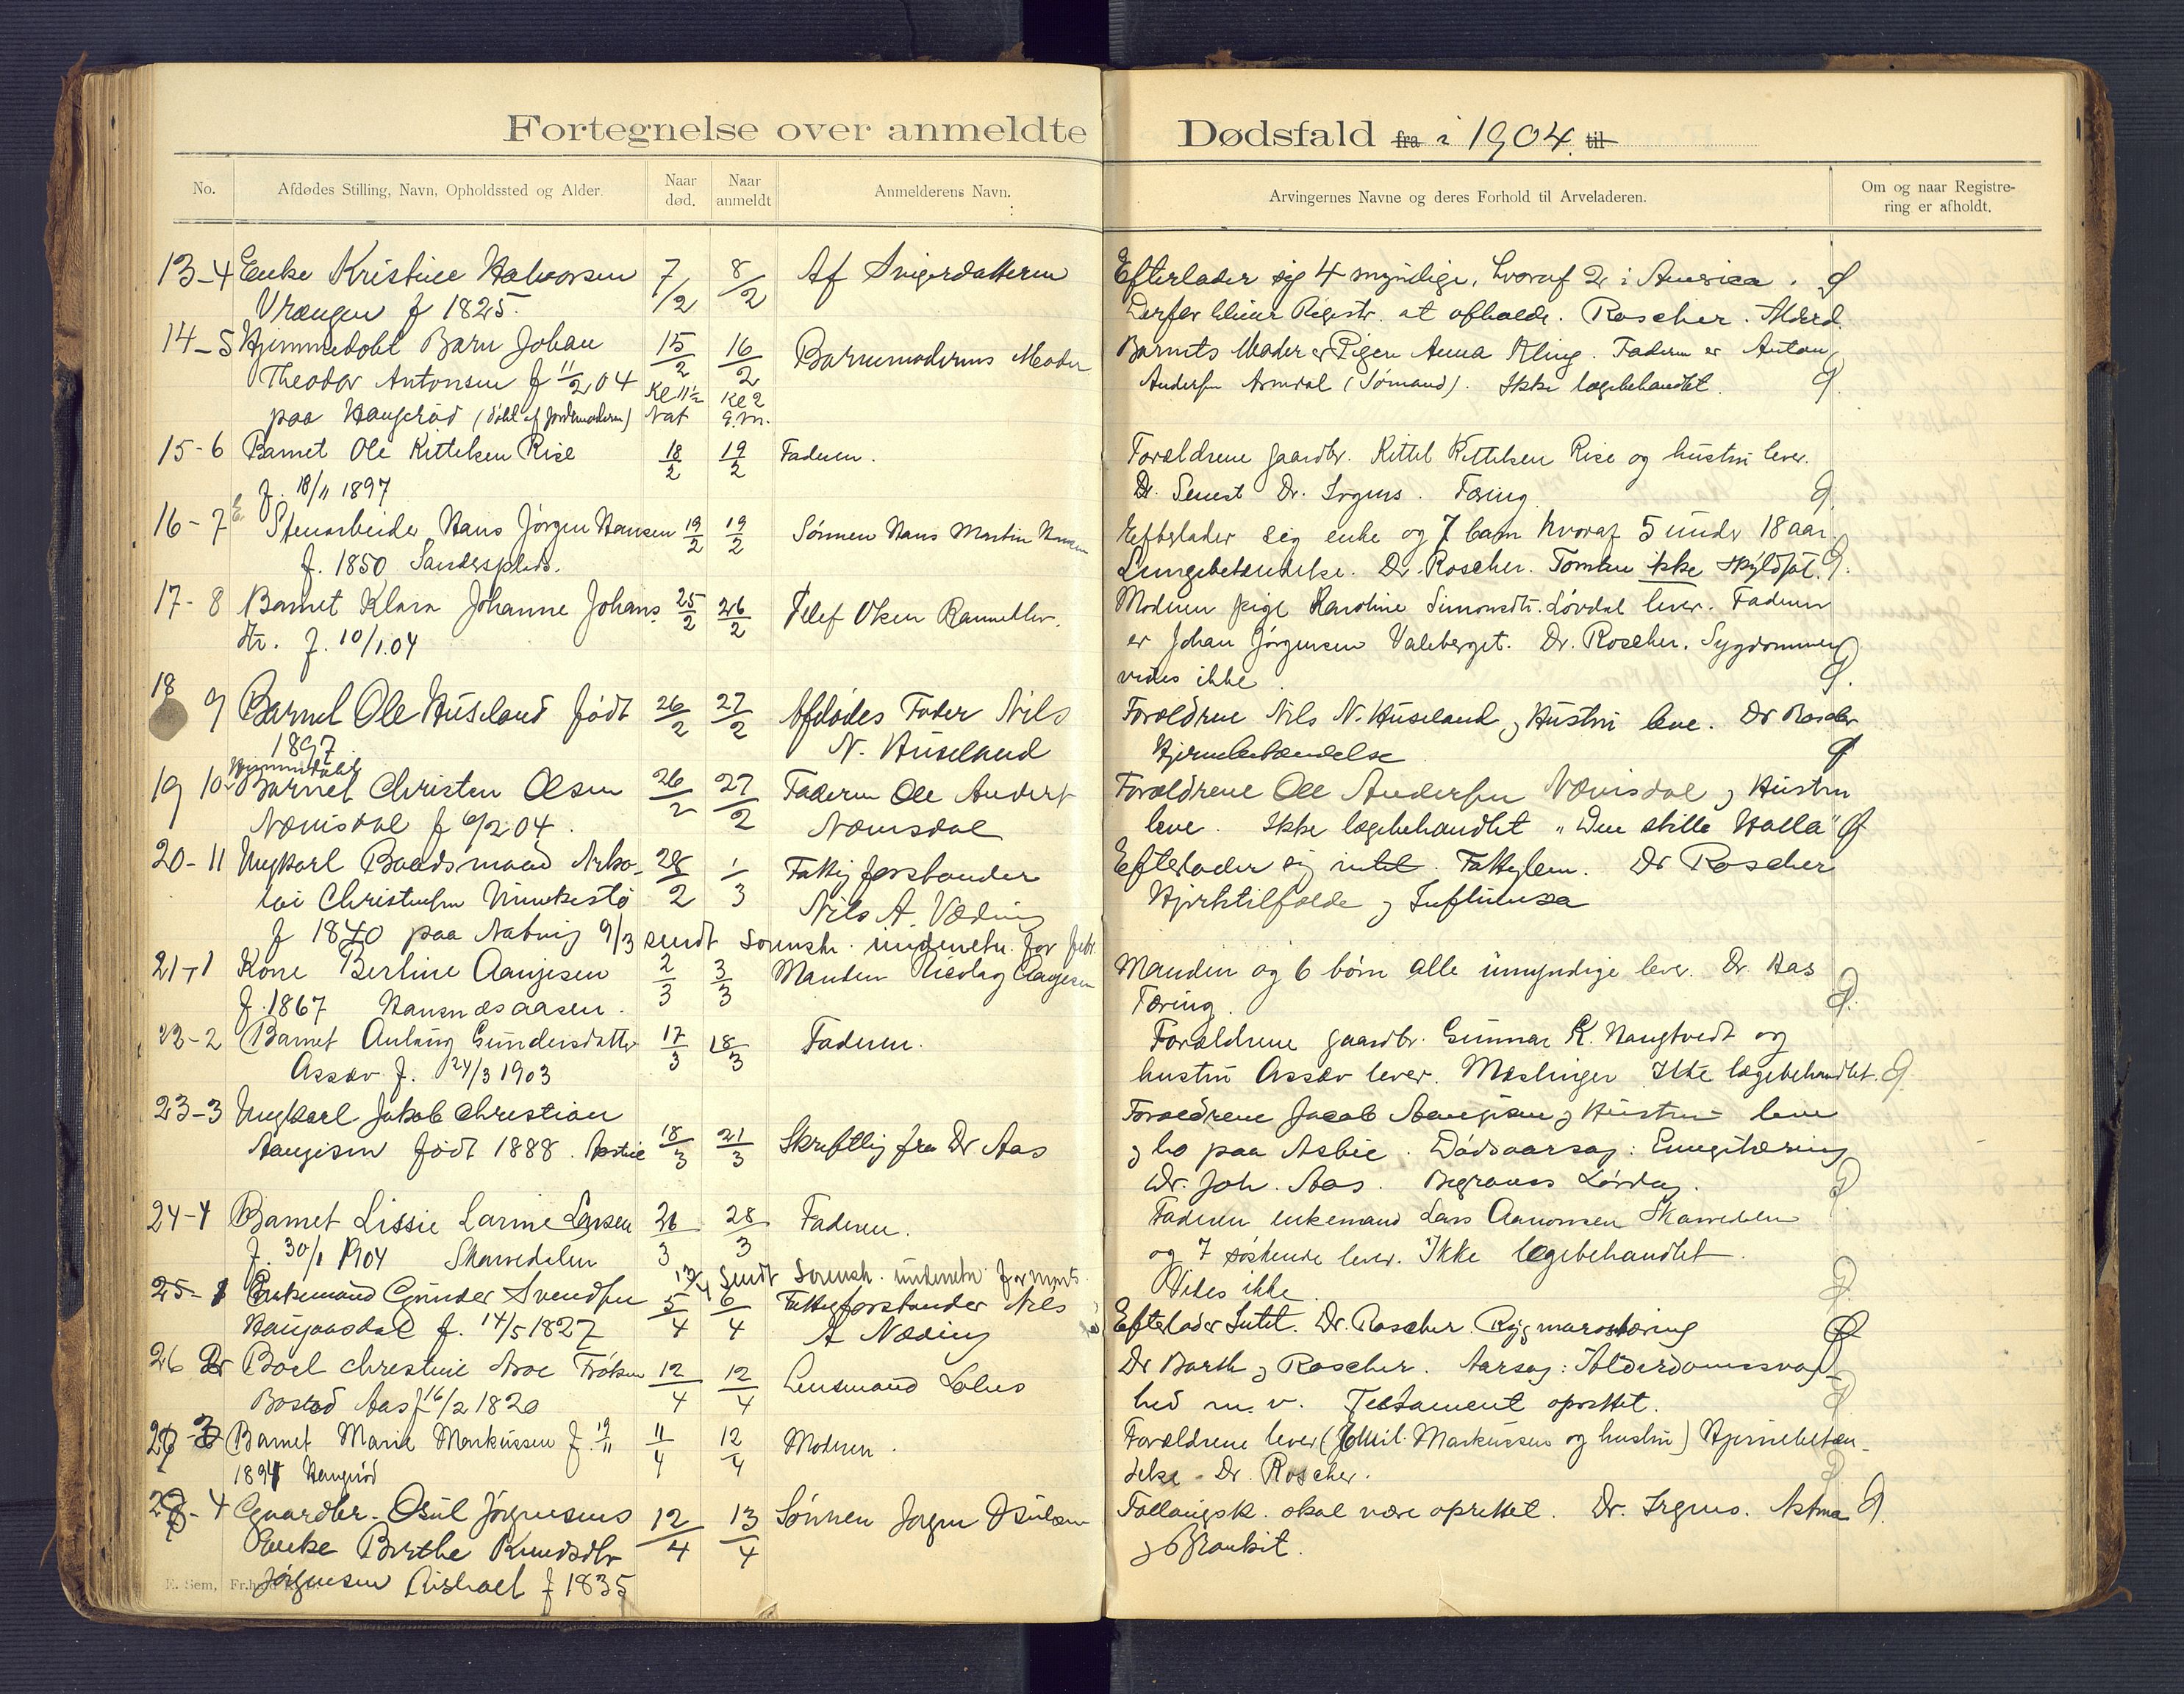 Fortegnelse over anmeldte Dødsfald fra i 1904. til
No.
Afdødes Stilling, Navn, Opholdssted og Alder.
Naar død.
Naar anmeldt
Anmelderens Navn.
Arvingernes Navne og deres Forhold til Arveladeren.
Om og naar Registrering er afholdt.
13-4 Enke Kristine Halvorsen 7/2 8/2 Af Svigerdatteren
Vrængen f 1825.
Efterlader sig 4 myndige, hvoraf 2 i America.
Derfor bliver Registr. at afholde. Roscher. Alderd.
14-5 Hjemmedøbt Barn Johan 15/2 16/2 Barnemoderens Moder
Theodor Antonsen f 11/2 04 Kl 11½ Kl 2
paa Haugerød (døbt af Jordemoderen) Nat E.m.
Barnets Moder er Pigen Anna Kling. Faderen er Anton
Andersen Arendal (Sømand). Ikke lægebehandlet.
15-6 Barnet Ole Kittelsen Rise 18/2 19/2 Faderen.
f. 18/11 1897
Forældrene gaardbr. Kittel Kittelsen Rise og hustru lever.
Dr. Senest Dr. Irgens. Tæring
16-7 Stenarbeider Hans Jørgen Hansen 19/2 19/2 Sønnen Hans Martin Hansen
f. 1850 Sandersplads.
Efterlader sig enke og 7 barn hvoraf 5 under 18 aar.
Lungebetændelse. Dr. Roscher. Tomten ikke skyldsat.
17-8 Barnet Klara Johanne Johans 25/2 26/2 Olsen
dtr. f. 10/1.04
Moderen pige Karoline Simonsdtr. Løvdal lever. Faderen
er Johan Jørgensen Valeberget. Dr. Roscher. Sygdommen
vides ikke.
18 9 Barnet Ole Huseland født 26/2 27/2 Afdødes Fader Nils
1897 N. Huseland
Forældrene Nils N. Huseland og Hustru leve. Dr Roscher
Hjernebetændelse
19 10 Hjemmedøbt
Barnet Christen Olsen 26/2 27/2 Faderen Ole Anders
Næuisdal f 6/2 04. Næuisdal
Forældrene Ole Andersen Næuisdal og Hustru
leve. Ikke lægebehandlet "Den stille Halla"
20-11 Ungkarl Baadsmand Niko- 28/2 1/3 Fattigforstander
lai Christensen Nils A. Næding
f 1840 paa Natvig 9/3 sendt Sorensk. underretn. for febr.
Efterlader sig intet. Fattiglem. Dr Roscher
Hjertetilfælde og Influensa
21-1 Kone Bertine Aanjesen 2/3 3/3 Manden Nicolay Aanjesen
f. 1867 Hansnæsaasen.
Manden og 6 børn alle umyndige lever. Dr. Aas
Tæring.
22-2 Barnet Anlaug Gundersdatter 17/3 18/3 Faderen.
Assæv f. 24/3 1903
Forældrene gaardbr. Gunnar K. Haugtvedt og
hustru Assæv lever. Mæslinger Ikke lægebehandlet.
23-3 Ungkarl Jakob Christian
Aanjesen født 1888. Asbie 18/3 21/3 Skriftlig fra Dr Aas
Forældrene Jacob Aanjesen og Hustru leve
og bo paa Asbie. Dødsaarsag: Lungetæring
Dr. Joh. Aas. Begraves Lørdag.
24-4 Barnet Lissie Larine Larsen 26/3 28/3 Faderen.
f. 30/1 1904 Skarredalen
Faderen enkemand Lars Aanonsen Skarredalen
og 7 søskende lever. Ikke lægebehandlet.
Vides ikke.
13/4 sendt Sorensk. underretn. for marts.
25-1 Enkemand Gunder Svendsen 5/4 6/4 Fattigforstander Nils
Haugaasdal f. 14/5 1827 A Næding
Efterlader Intet. Dr. Roscher. Rygmarvstæring
26 2 Boel Christine Aroe Frøken 12/4 12/4 Lensmand
Bosted Aas f 16/2 1820
Dr Barth og Roscher. Aarsag: Alderdomssvag-
hed m. v. Testament oprettet.
27 3 Barnet Marie Markussen f. 19/11 11/4 12/4 Moderen.
1897 Haugerød
Forældrene lever (Emil Markussen og hustru) Hjernebetæn-
delse. Dr. Roscher.
28-4 Gaardbr. Osul Jørgensens 12/4 13/4 Sønnen Jørgen Osulsen
Enke Berthe Knudsdtr
Jørgensen f 1835
Fællangsk. skal være oprettet. Dr. Irgens. Astma
og Bronkit.
E. Sem, Fr.hald